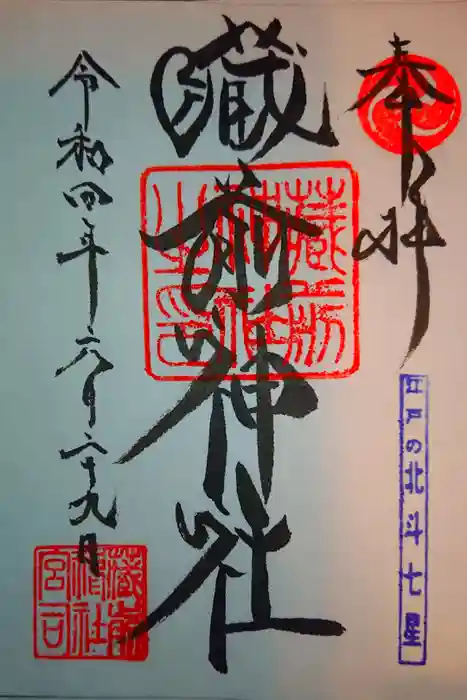 奉拝
江戸の北斗七星
藏前神社
藏前神社之印
令和四年六月二十九日
藏前稲社宮司